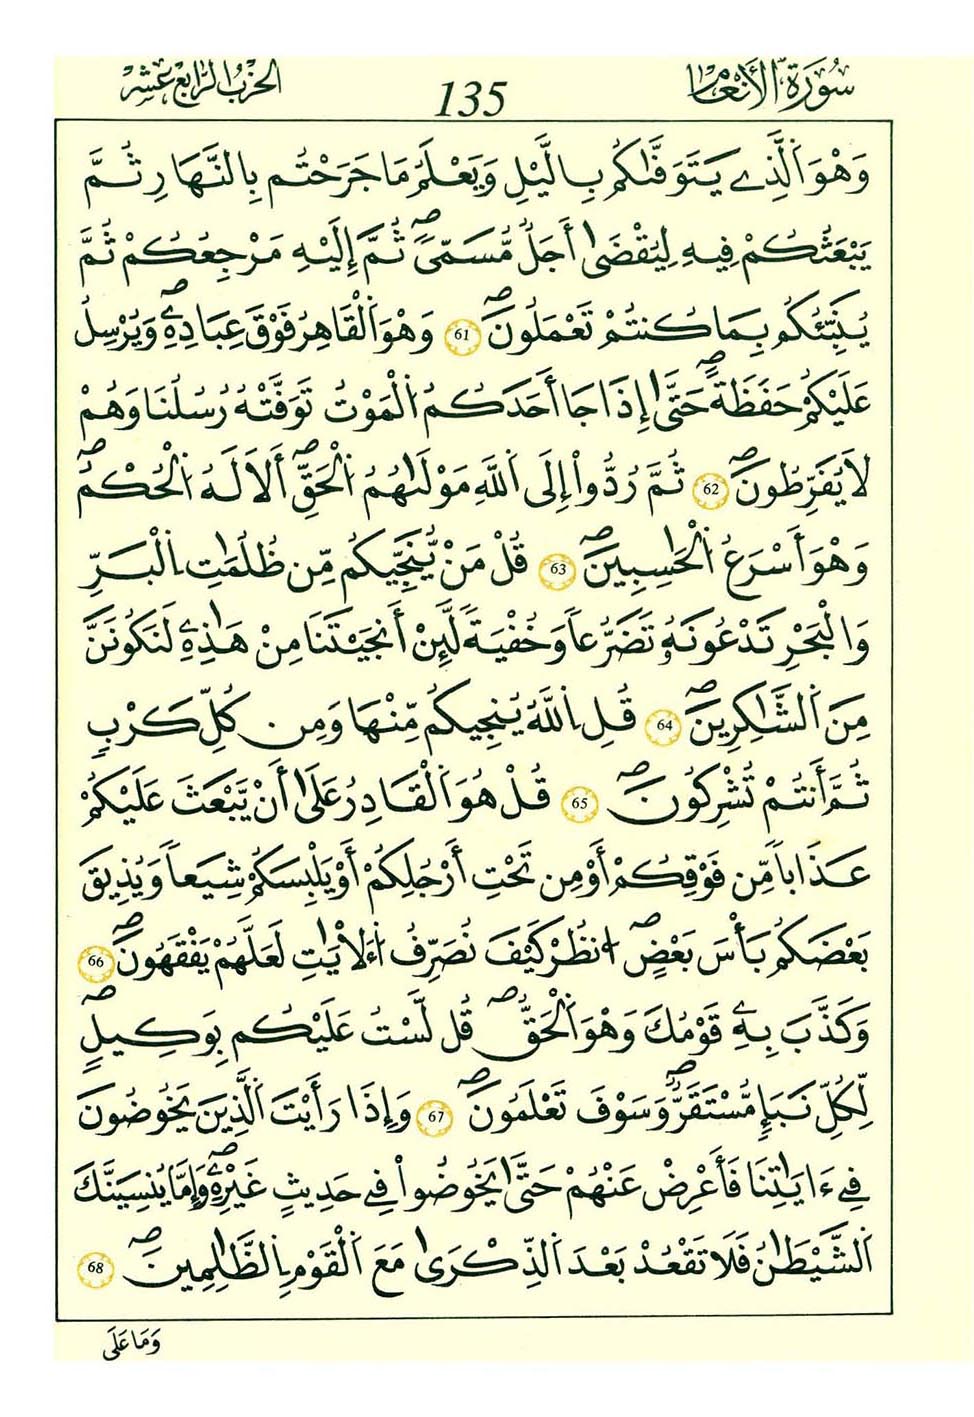 سُورَةُ الأَنْعَام
135
الحِزْبُ الرَّابِع عَشَر
وَهُوَ اَلَّذِے يَتَوَفَّىٰكُم بِالَّيْلِ وَيَعْلَمُ مَا جَرَحْتُم بِالنَّهَارِ ثُمَّ
يَبْعَثُكُمْ فِيهِ لِيُقْضَىٰ أَجَلٌ مُّسَمّىًۖ ثُمَّ إِلَيْهِ مَرْجِعُكُمْ ثُمَّ
يُنَبِّئُكُم بِمَا كُنتُمْ تَعْمَلُونَۖ 61 وَهُوَ اَلْقَاهِرُ فَوْقَ عِبَادِهِۦۖ وَيُرْسِلُ
عَلَيْكُمْ حَفَظَةًۖ حَتَّىٰ إِذَا جَا أَحَدَكُمُ اُلْمَوْتُ تَوَفَّتْهُ رُسُلُنَا وَهُمْ
لَا يُفَرِّطُونَۖ 62 ثُمَّ رُدُّواْ إِلَى اَللَّهِ مَوْلَىٰهُمُ اُلْحَقِّۖ أَلَا لَهُ اُلْحُكْمُۖ
وَهُوَ أَسْرَعُ اُلْحَٰسِبِينَۖ 63 قُلْ مَنْ يُّنَجِّيكُم مِّن ظُلُمَٰتِ اِلْبَرِّ
وَالْبَحْرِ تَدْعُونَهُۥ تَضَرُّعاً وَخُفْيَةً لَّئِنْ أَنجَيْتَنَا مِنْ هَٰذِهِۦ لَنَكُونَنَّ
مِنَ اَلشَّٰكِرِينَۖ 64 قُلِ اِللَّهُ يُنجِيكُم مِّنْهَا وَمِن كُلِّ كَرْبٍ
ثُمَّ أَنتُمْ تُشْرِكُونَۖ 65 قُلْ هُوَ اَلْقَادِرُ عَلَىٰ أَنْ يَّبْعَثَ عَلَيْكُمْ
عَذَاباً مِّن فَوْقِكُمْ أَوْ مِن تَحْتِ أَرْجُلِكُمْ أَوْ يَلْبِسَكُمْ شِيَعاً وَيُذِيقَ
بَعْضَكُم بَأْسَ بَعْضٍۖ اُنظُرْ كَيْفَ نُصَرِّفُ اُلْأَيَٰتِ لَعَلَّهُمْ يَفْقَهُونَۖ 66
وَكَذَّبَ بِهِۦ قَوْمُكَ وَهُوَ اَلْحَقُّۖ قُل لَّسْتُ عَلَيْكُم بِوَكِيلٍۖ
لِّكُلِّ نَبَإٍ مُّسْتَقَرٌّۖ وَسَوْفَ تَعْلَمُونَۖ 67 وَإِذَا رَأَيْتَ اَلَّذِينَ يَخُوضُونَ
فِے ءَايَٰتِنَا فَأَعْرِضْ عَنْهُمْ حَتَّىٰ يَخُوضُواْ فِے حَدِيثٍ غَيْرِهِۦۖ وَإِمَّا يُنسِيَنَّكَ
اَلشَّيْطَٰنُ فَلَا تَقْعُدْ بَعْدَ اَلذِّكْرَىٰ مَعَ اَلْقَوْمِ اِلظَّٰلِمِينَۖ 68
وَمَا عَلَى